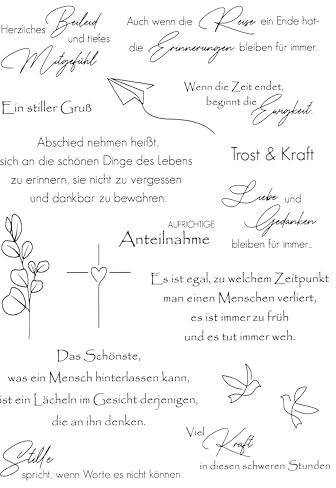 Herzliches Beileid
und tiefes
Mitgefühl
Auch wenn die Reise ein Ende hat-
die Erinnerungen bleiben für immer.
Ein stiller Gruß
Wenn die Zeit endet,
beginnt die
Ewigkeit.
Abschied nehmen heißt,
sich an die schönen Dinge des Lebens
zu erinnern, sie nicht zu vergessen
und dankbar zu bewahren.
Trost & Kraft
Liebe und
Gedanken
bleiben für immer...
AUFRICHTIGE
Anteilnahme
Es ist egal, zu welchem Zeitpunkt
man einen Menschen verliert,
es ist immer zu früh
und es tut immer weh.
Das Schönste,
was ein Mensch hinterlassen kann,
ist ein Lächeln im Gesicht derjenigen,
die an ihn denken.
Viel Kraft
in diesen schweren Stunden
Stille
spricht, wenn Worte es nicht können.